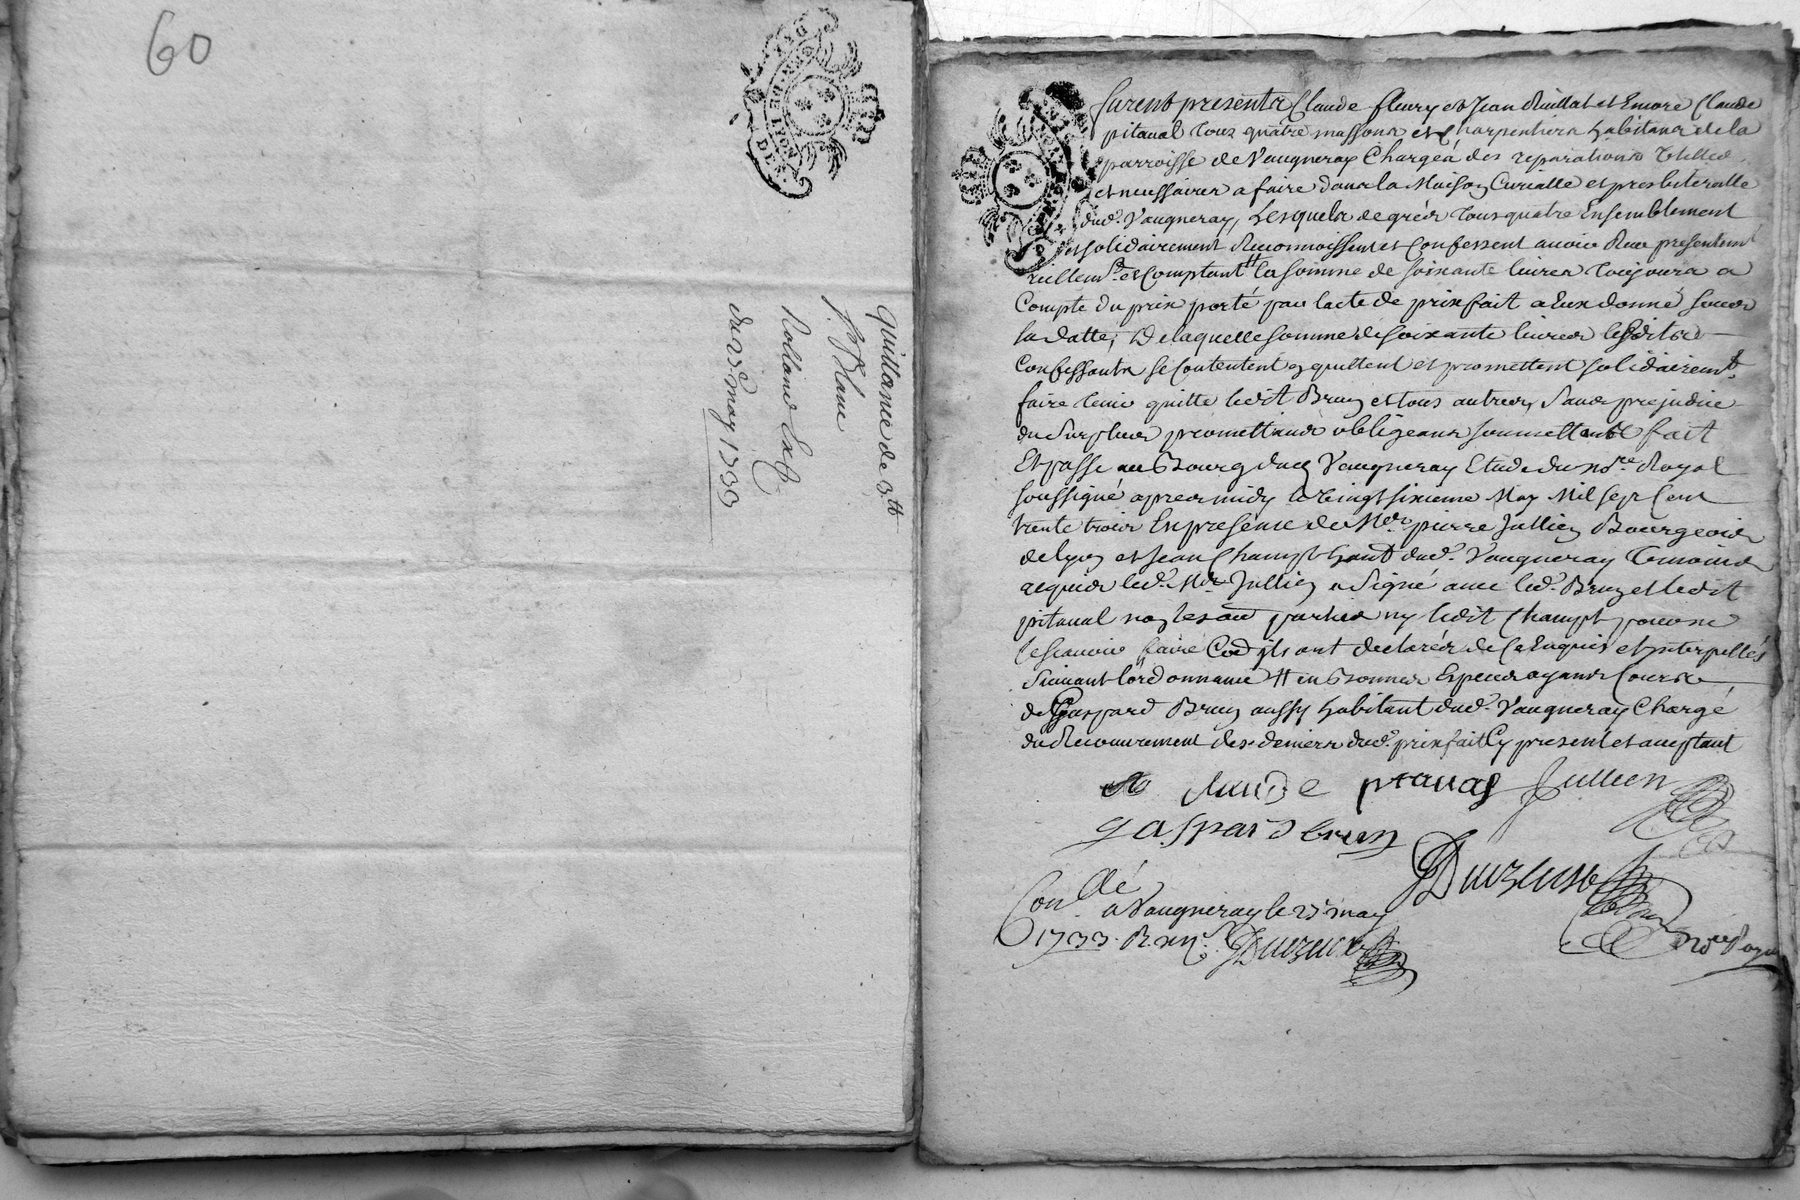 60
quittance de 3tt
p. Blanc
Rolland Exp.
du 2e may 1733
furent presents Claude fleury et Jean Ruillat et Emore Claude
pitaval tous quatre massons et Charpentiers habitans de la
parroisse de Vaugneray Chargés des reparations utilles
et necessaires a faire dans la Maison Curialle et presbiteralle
dud. Vaugneray, Lesquels de grés tous quatre Ensemblement
et solidairement Reconnoissent et Confessent avoir Receu presentement
reellemt. et Comptant # la somme de soixante livres toujours a
Compte du prix porté par lacte de prixfait a Eux donné sous
sa datte, De laquelle somme de soixante livres lesdits
Confessants se Contentent quittent et promettent solidairemt.
faire tenir quitte ledit Brun et tous autres, sans prejudice
du surplus promettans obligeans soumettants fait
Et passé au Bourg dud Vaugneray Etude du nore. Royal
soussigné apres midy le vingt sixieme May Mil sept Cent
trente trois En presence de Mr pierre Jullien Bourgeois
de lyon et Jean Champt habt dud. Vaugneray temoins
requis led. Mr Jullien a signé avec led. Brun et ledit
pitaval non les au parties ny ledit Champt pour ne
le scavoir faire Co ils ont declarés de ce Enquis et interpellés
suivant lordonnance # en Bonnes Especes ayants Cours
de Gaspard Brun aussy habitant dud. Vaugneray Chargé
du Recouvrement des deniers dud. prixfait Cy present et aceptant
Claude pitaval Jullien
gaspard brun
Conllé
a Vaugneray le 27 may
1733. R
nore Royal